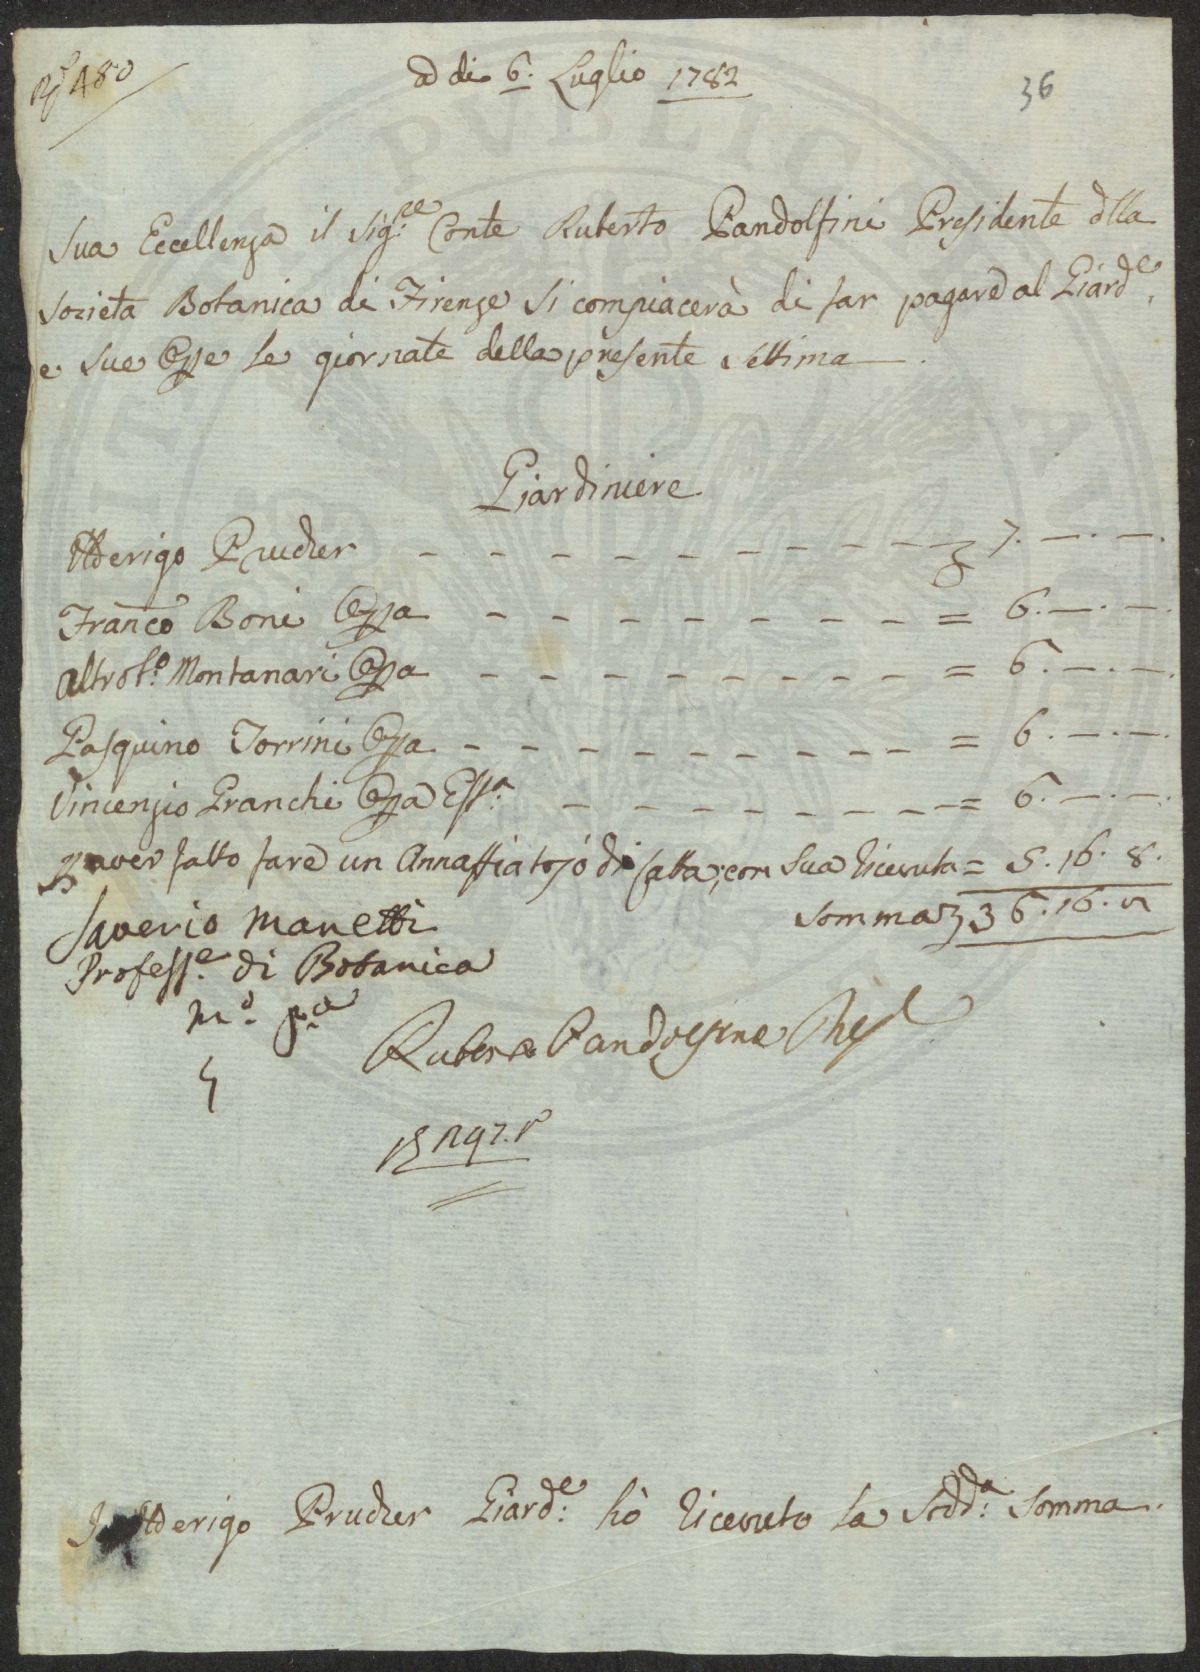 480
A di 6. Luglio 1782
36
Sua Eccellenza il Sig.re Conte Ruberto Pandolfini Presidente dlla
Società Botanica di Firenze si compiacerà di far pagare al Giard.e
e sue Oppe le giornate della presente settima
Giardiniere
Atterigo Prucker 7. — . — .
Franco Boni Oppa = 6. — . — .
Montanari Oppa = 6. — . — .
Pasquino Torrini Oppa = 6. — . — .
Vincenzio Granchi Oppa = 6. — . — .
aver fatto fare un Annaffiatojo di latta, con Sua ricevuta = 5. 16. 8.
Somma 36. 16.
Saverio Manetti
Profess.e di Botanica
m.o p.a
Ruberto Pandolfini Presd
Atterigo Prucker Giard.e hò ricevuto la Sudd.a Somma.
PVBLIC